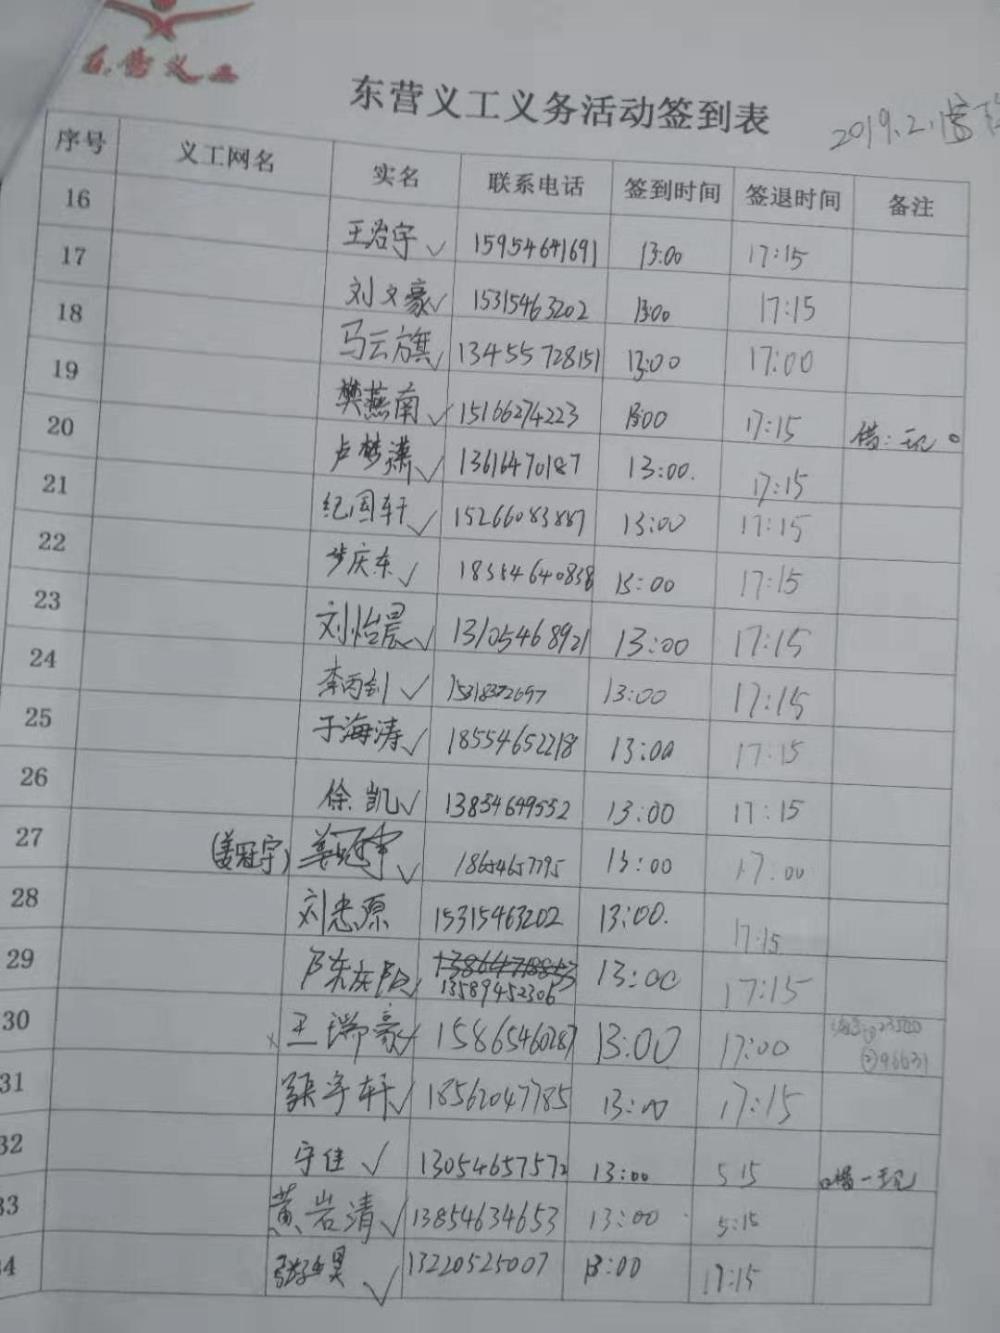 东营义工
东营义工义务活动签到表
2019.2.
序号 义工网名 实名 联系电话 签到时间 签退时间 备注
16 王治宇✓ 15954641691 13:00 17:15
17 刘文豪✓ 15315463202 13:00 17:15
18 马云旗✓ 13455728151 13:00 17:00
19 樊燕南✓ 15166274223 13:00 17:15
20 卢梦潇✓ 13616470187 13:00. 17:15
21 纪国轩✓ 15266083887 13:00 17:15
22 步庆东✓ 18354640838 13:00 17:15
23 刘怡晨✓ 13105468921 13:00 17:15
24 李丙剑✓ 15318372697 13:00 17:15
25 于海涛✓ 18554652218 13:00 17:15
26 徐凯✓ 13854649552 13:00 17:15
27 (姜冠宇) 姜冠宇✓ 18654657795 13:00 17:00
28 刘忠源 15315463202 13:00. 17:15
29 13589452306 13:00 17:15
30 王瑞豪✓ 15865460287 13:00 17:00 ②96631
31 张宇轩✓ 18562047785 13:00 17:15
32 守佳✓ 13054657572 13:00 5 15
33 黄岩清✓ 13854634653 13:00 5:15
34 13220525007 13:00 17:15